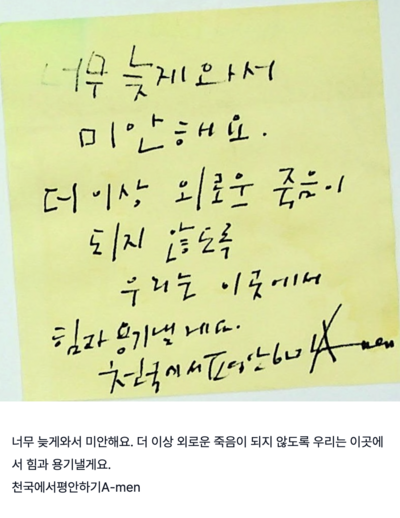 너무 늦게와서
미안해요.
더 이상 외로운 죽음이
되지 않도록
우리는 이곳에서
힘과 용기낼게요.
천국에서평안하기A-men
너무 늦게와서 미안해요. 더 이상 외로운 죽음이 되지 않도록 우리는 이곳에
서 힘과 용기낼게요.
천국에서평안하기A-men